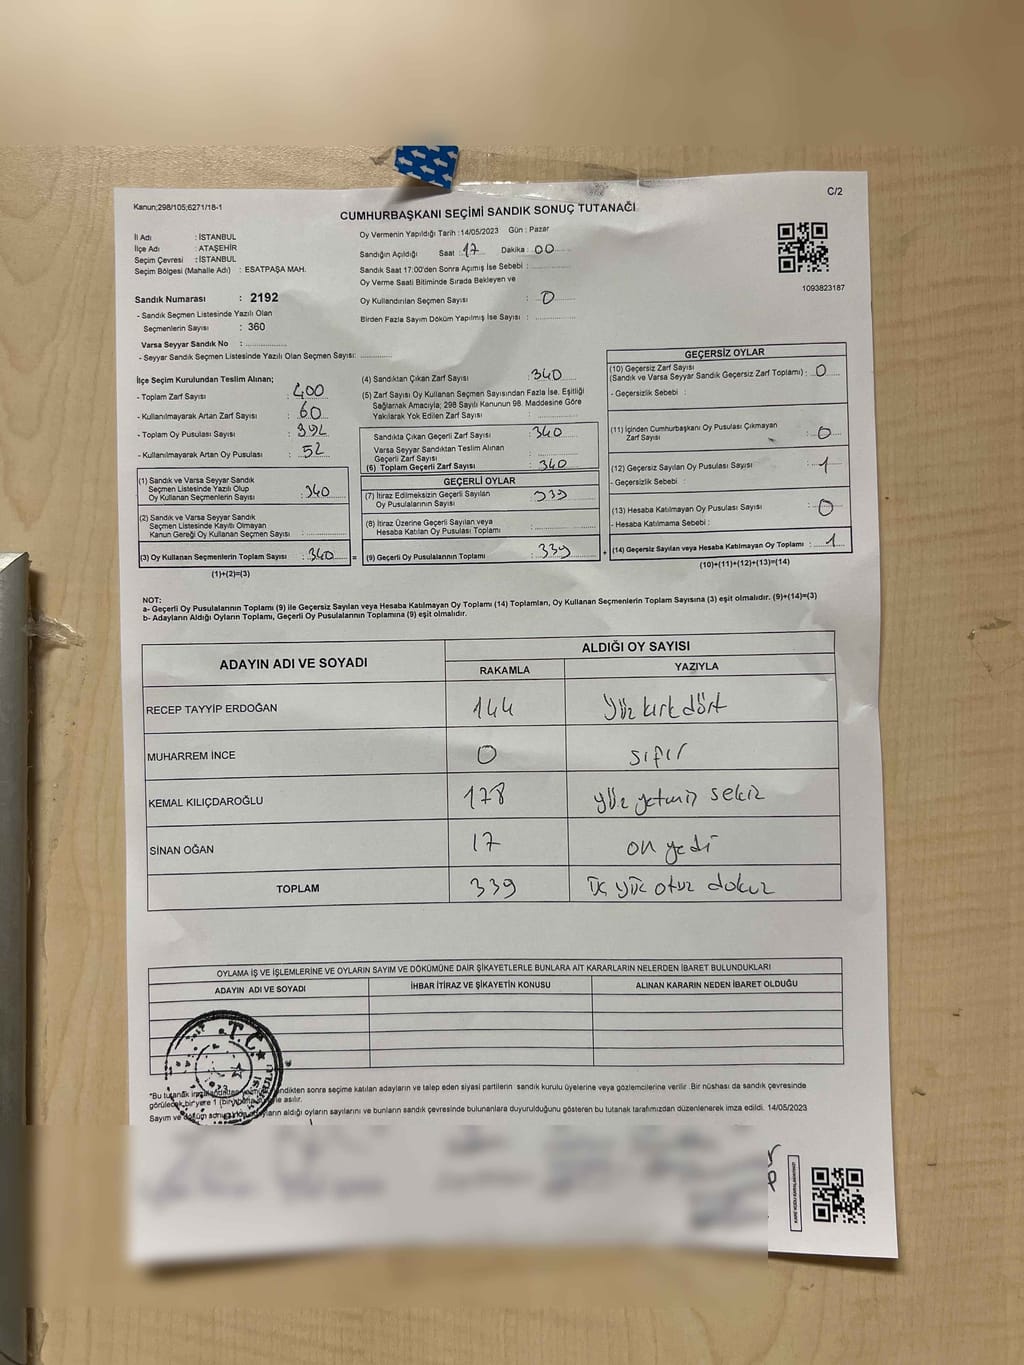 C/2
Kanun;298/105;6271/18-1
CUMHURBAŞKANI SEÇİMİ SANDIK SONUÇ TUTANAĞI
İl Adı : İSTANBUL
İlçe Adı : ATAŞEHİR
Seçim Çevresi : İSTANBUL
Seçim Bölgesi (Mahalle Adı) : ESATPAŞA MAH.
Oy Vermenin Yapıldığı Tarih :14/05/2023 Gün : Pazar
Sandığın Açıldığı Saat : 17 Dakika : 00
Sandık Saat 17:00'den Sonra Açımış İse Sebebi :
Oy Verme Saati Bitiminde Sırada Bekleyen ve
Oy Kullandırılan Seçmen Sayısı : 0
Birden Fazla Sayım Döküm Yapılmış İse Sayısı :
1093823187
Sandık Numarası : 2192
- Sandık Seçmen Listesinde Yazılı Olan
Seçmenlerin Sayısı : 360
Varsa Seyyar Sandık No :
- Seyyar Sandık Seçmen Listesinde Yazılı Olan Seçmen Sayısı:
İlçe Seçim Kurulundan Teslim Alınan;
- Toplam Zarf Sayısı : 400
- Kullanılmayarak Artan Zarf Sayısı : 60
- Toplam Oy Pusulası Sayısı : 392
- Kullanılmayarak Artan Oy Pusulası : 52
(1) Sandık ve Varsa Seyyar Sandık
Seçmen Listesinde Yazılı Olup
Oy Kullanan Seçmenlerin Sayısı : 340
(2) Sandık ve Varsa Seyyar Sandık
Seçmen Listesinde Kayıtlı Olmayan
Kanun Gereği Oy Kullanan Seçmen Sayısı :
(3) Oy Kullanan Seçmenlerin Toplam Sayısı : 340 =
(1)+(2)=(3)
(4) Sandıktan Çıkan Zarf Sayısı : 340
(5) Zarf Sayısı Oy Kullanan Seçmen Sayısından Fazla İse, Eşitliği
Sağlamak Amacıyla; 298 Sayılı Kanunun 98. Maddesine Göre
Yakılarak Yok Edilen Zarf Sayısı :
Sandıkta Çıkan Geçerli Zarf Sayısı : 340
Varsa Seyyar Sandıktan Teslim Alınan
Geçerli Zarf Sayısı :
(6) Toplam Geçerli Zarf Sayısı : 340
GEÇERLİ OYLAR
(7) İtiraz Edilmeksizin Geçerli Sayılan
Oy Pusulalarının Sayısı : 339
(8) İtiraz Üzerine Geçerli Sayılan veya
Hesaba Katılan Oy Pusulası Toplamı :
(9) Geçerli Oy Pusulalarının Toplamı : 339 +
GEÇERSİZ OYLAR
(10) Geçersiz Zarf Sayısı
(Sandık ve Varsa Seyyar Sandık Geçersiz Zarf Toplamı) : 0
- Geçersizlik Sebebi :
(11) İçinden Cumhurbaşkanı Oy Pusulası Çıkmayan
Zarf Sayısı : 0
(12) Geçersiz Sayılan Oy Pusulası Sayısı : 1
- Geçersizlik Sebebi :
(13) Hesaba Katılmayan Oy Pusulası Sayısı : 0
- Hesaba Katılmama Sebebi :
(14) Geçersiz Sayılan veya Hesaba Katılmayan Oy Toplamı : 1
(10)+(11)+(12)+(13)=(14)
NOT:
a- Geçerli Oy Pusulalarının Toplamı (9) ile Geçersiz Sayılan veya Hesaba Katılmayan Oy Toplamı (14) Toplamları, Oy Kullanan Seçmenlerin Toplam Sayısına (3) eşit olmalıdır. (9)+(14)=(3)
b- Adayların Aldığı Oyların Toplamı, Geçerli Oy Pusulalarının Toplamına (9) eşit olmalıdır.
ADAYIN ADI VE SOYADI
ALDIĞI OY SAYISI
RAKAMLA YAZIYLA
RECEP TAYYİP ERDOĞAN 144 Yüz kırk dört
MUHARREM İNCE 0 sıfır
KEMAL KILIÇDAROĞLU 178 yüz yetmiş sekiz
SİNAN OĞAN 17 on yedi
TOPLAM 339 üç yüz otuz dokuz
OYLAMA İŞ VE İŞLEMLERİNE VE OYLARIN SAYIM VE DÖKÜMÜNE DAİR ŞİKAYETLERLE BUNLARA AİT KARARLARIN NELERDEN İBARET BULUNDUKLARI
ADAYIN ADI VE SOYADI İHBAR İTİRAZ VE ŞİKAYETİN KONUSU ALINAN KARARIN NEDEN İBARET OLDUĞU
T.C.
*Bu tutanak sonra seçime katılan adayların ve talep eden siyasi partilerin sandık kurulu üyelerine veya gözlemcilerine verilir. Bir nüshası da sandık çevresinde
görülecek bir yere 1 asılır.
Sayım ve döküm aldığı oyların sayılarını ve bunların sandık çevresinde bulunanlara duyurulduğunu gösteren bu tutanak tarafımızdan düzenlenerek imza edildi. 14/05/2023